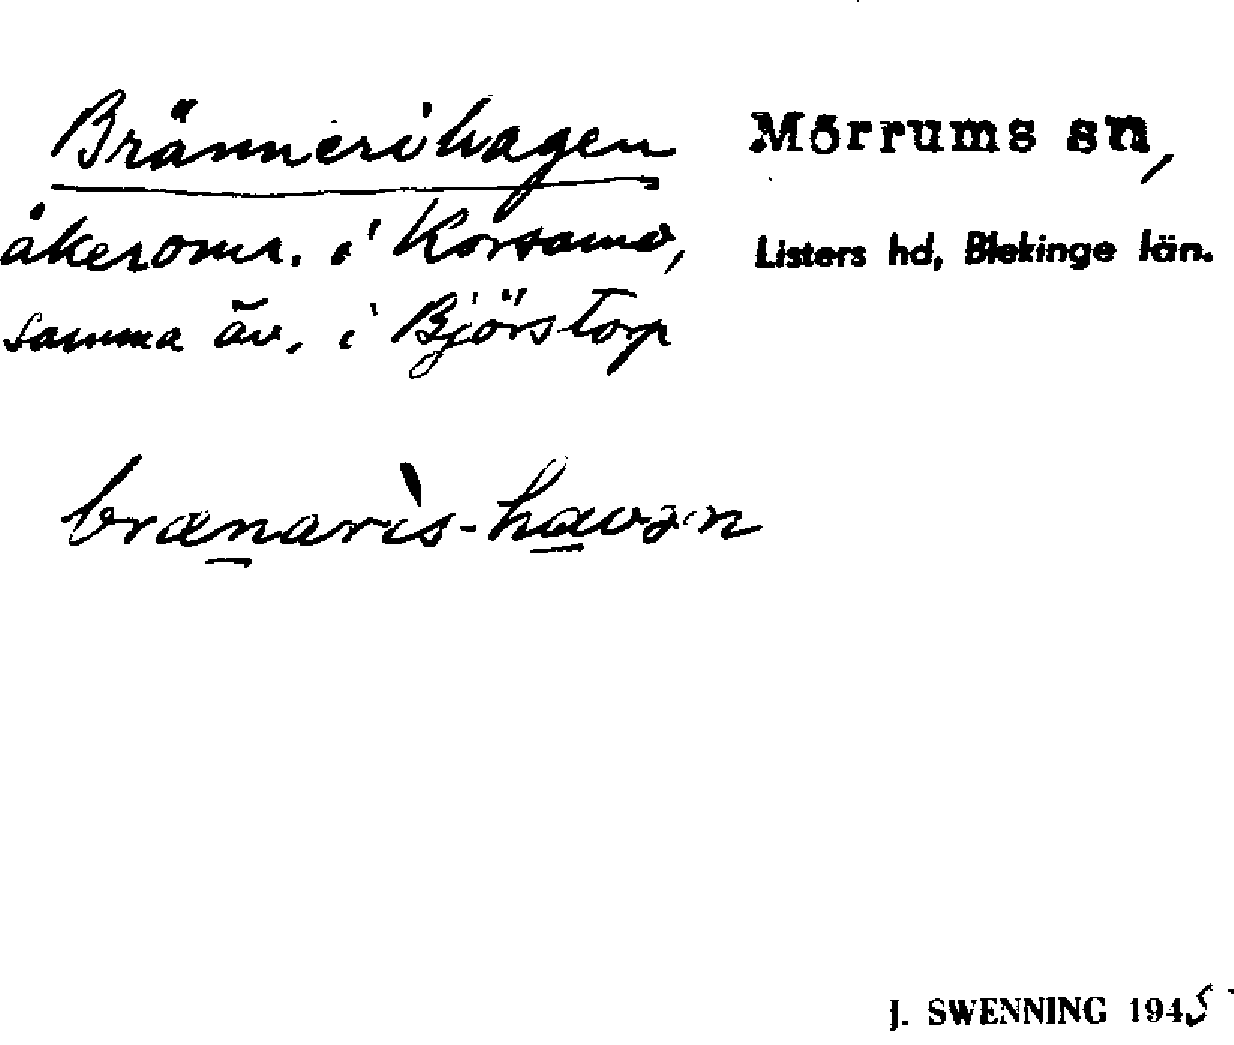 Brännerihagen
åkeromr. i Korsamo,
samma äv. i Björstorp
brænaris-havən
Mörrums sn,
Listers hd, Blekinge län.
J. SWENNING 1945